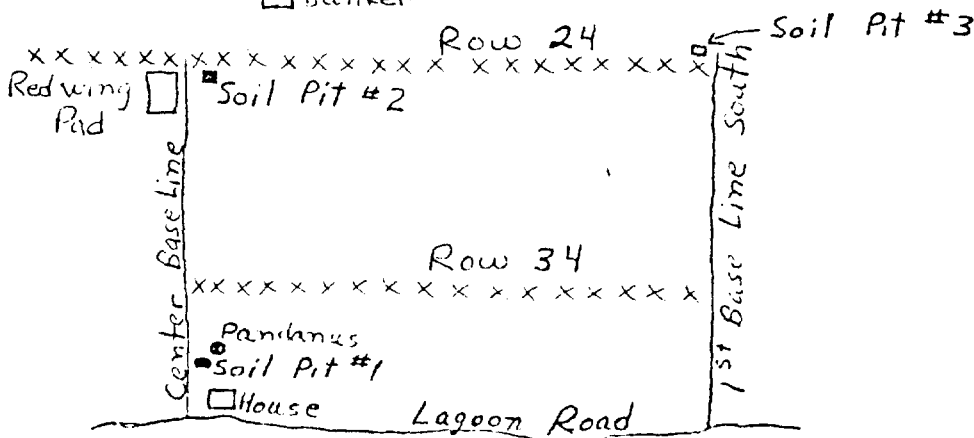 Bunker
Row 24
Soil Pit #3
Redwing
Pad
Soil Pit #2
Center Base Line
1st Base Line South
Row 34
Pandanus
Soil Pit #1
House
Lagoon Road